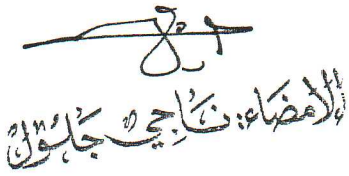 الإمضاء: نَاجِي جَلُّول